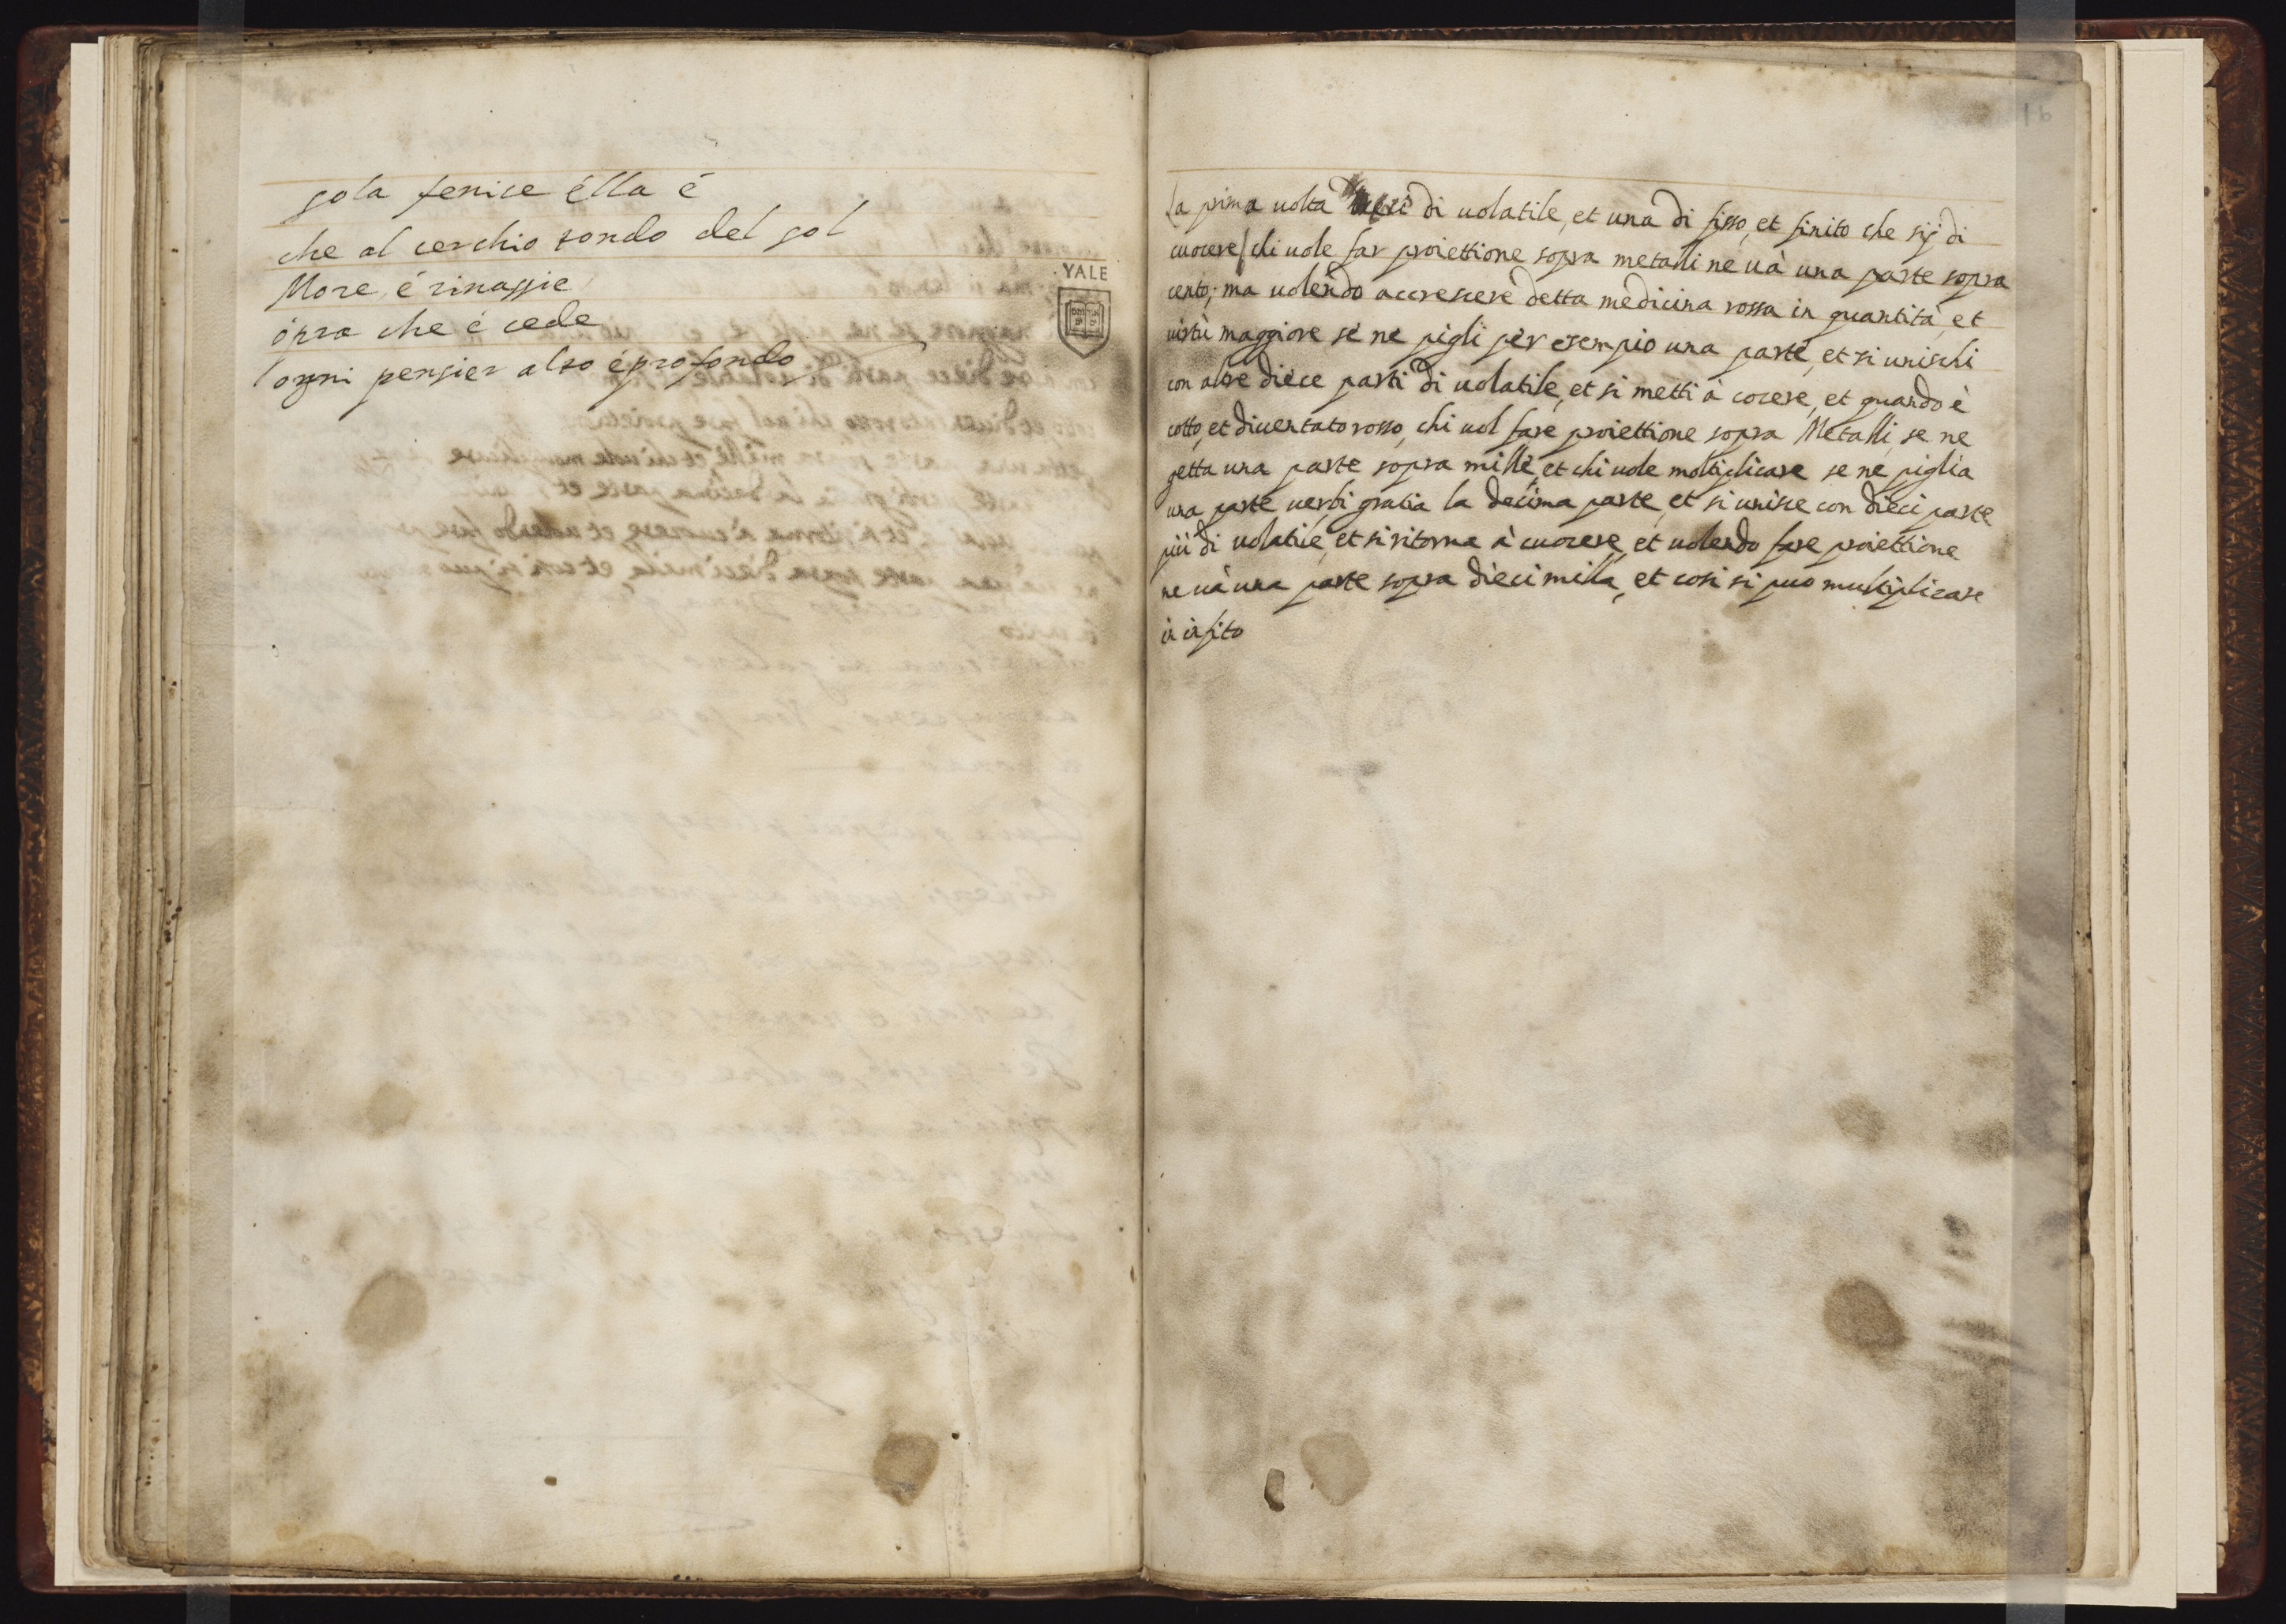 sola fenice élla é
che al cerchio tondo del sol
More, é rinassie
ópra che é cede
ogni pensier alto é profondo
YALE
16
La prima uolta dieci di uolatile, et una di fisso, et finito che sij di
cuocere chi uole far proiettione sopra metalli ne uà una parte sopra
cento; ma uolendo accrescere detta medicina rossa in quantità, et
uirtù maggiore se ne pigli per esempio una parte, et si unischi
con altre diece parti di uolatile, et si metti à cocere, et quando è
cotto, et diuentato rosso, chi uol fare proiettione sopra Metalli, se ne
getta una parte sopra mille, et chi uole moltiplicare se ne piglia
una parte uerbi gratia la decima parte, et si unisce con dieci parte
più di uolatile, et si ritorna à cuocere, et uolendo fare proiettione
ne uà una parte sopra dieci milla, et così si puo multiplicare
in infito